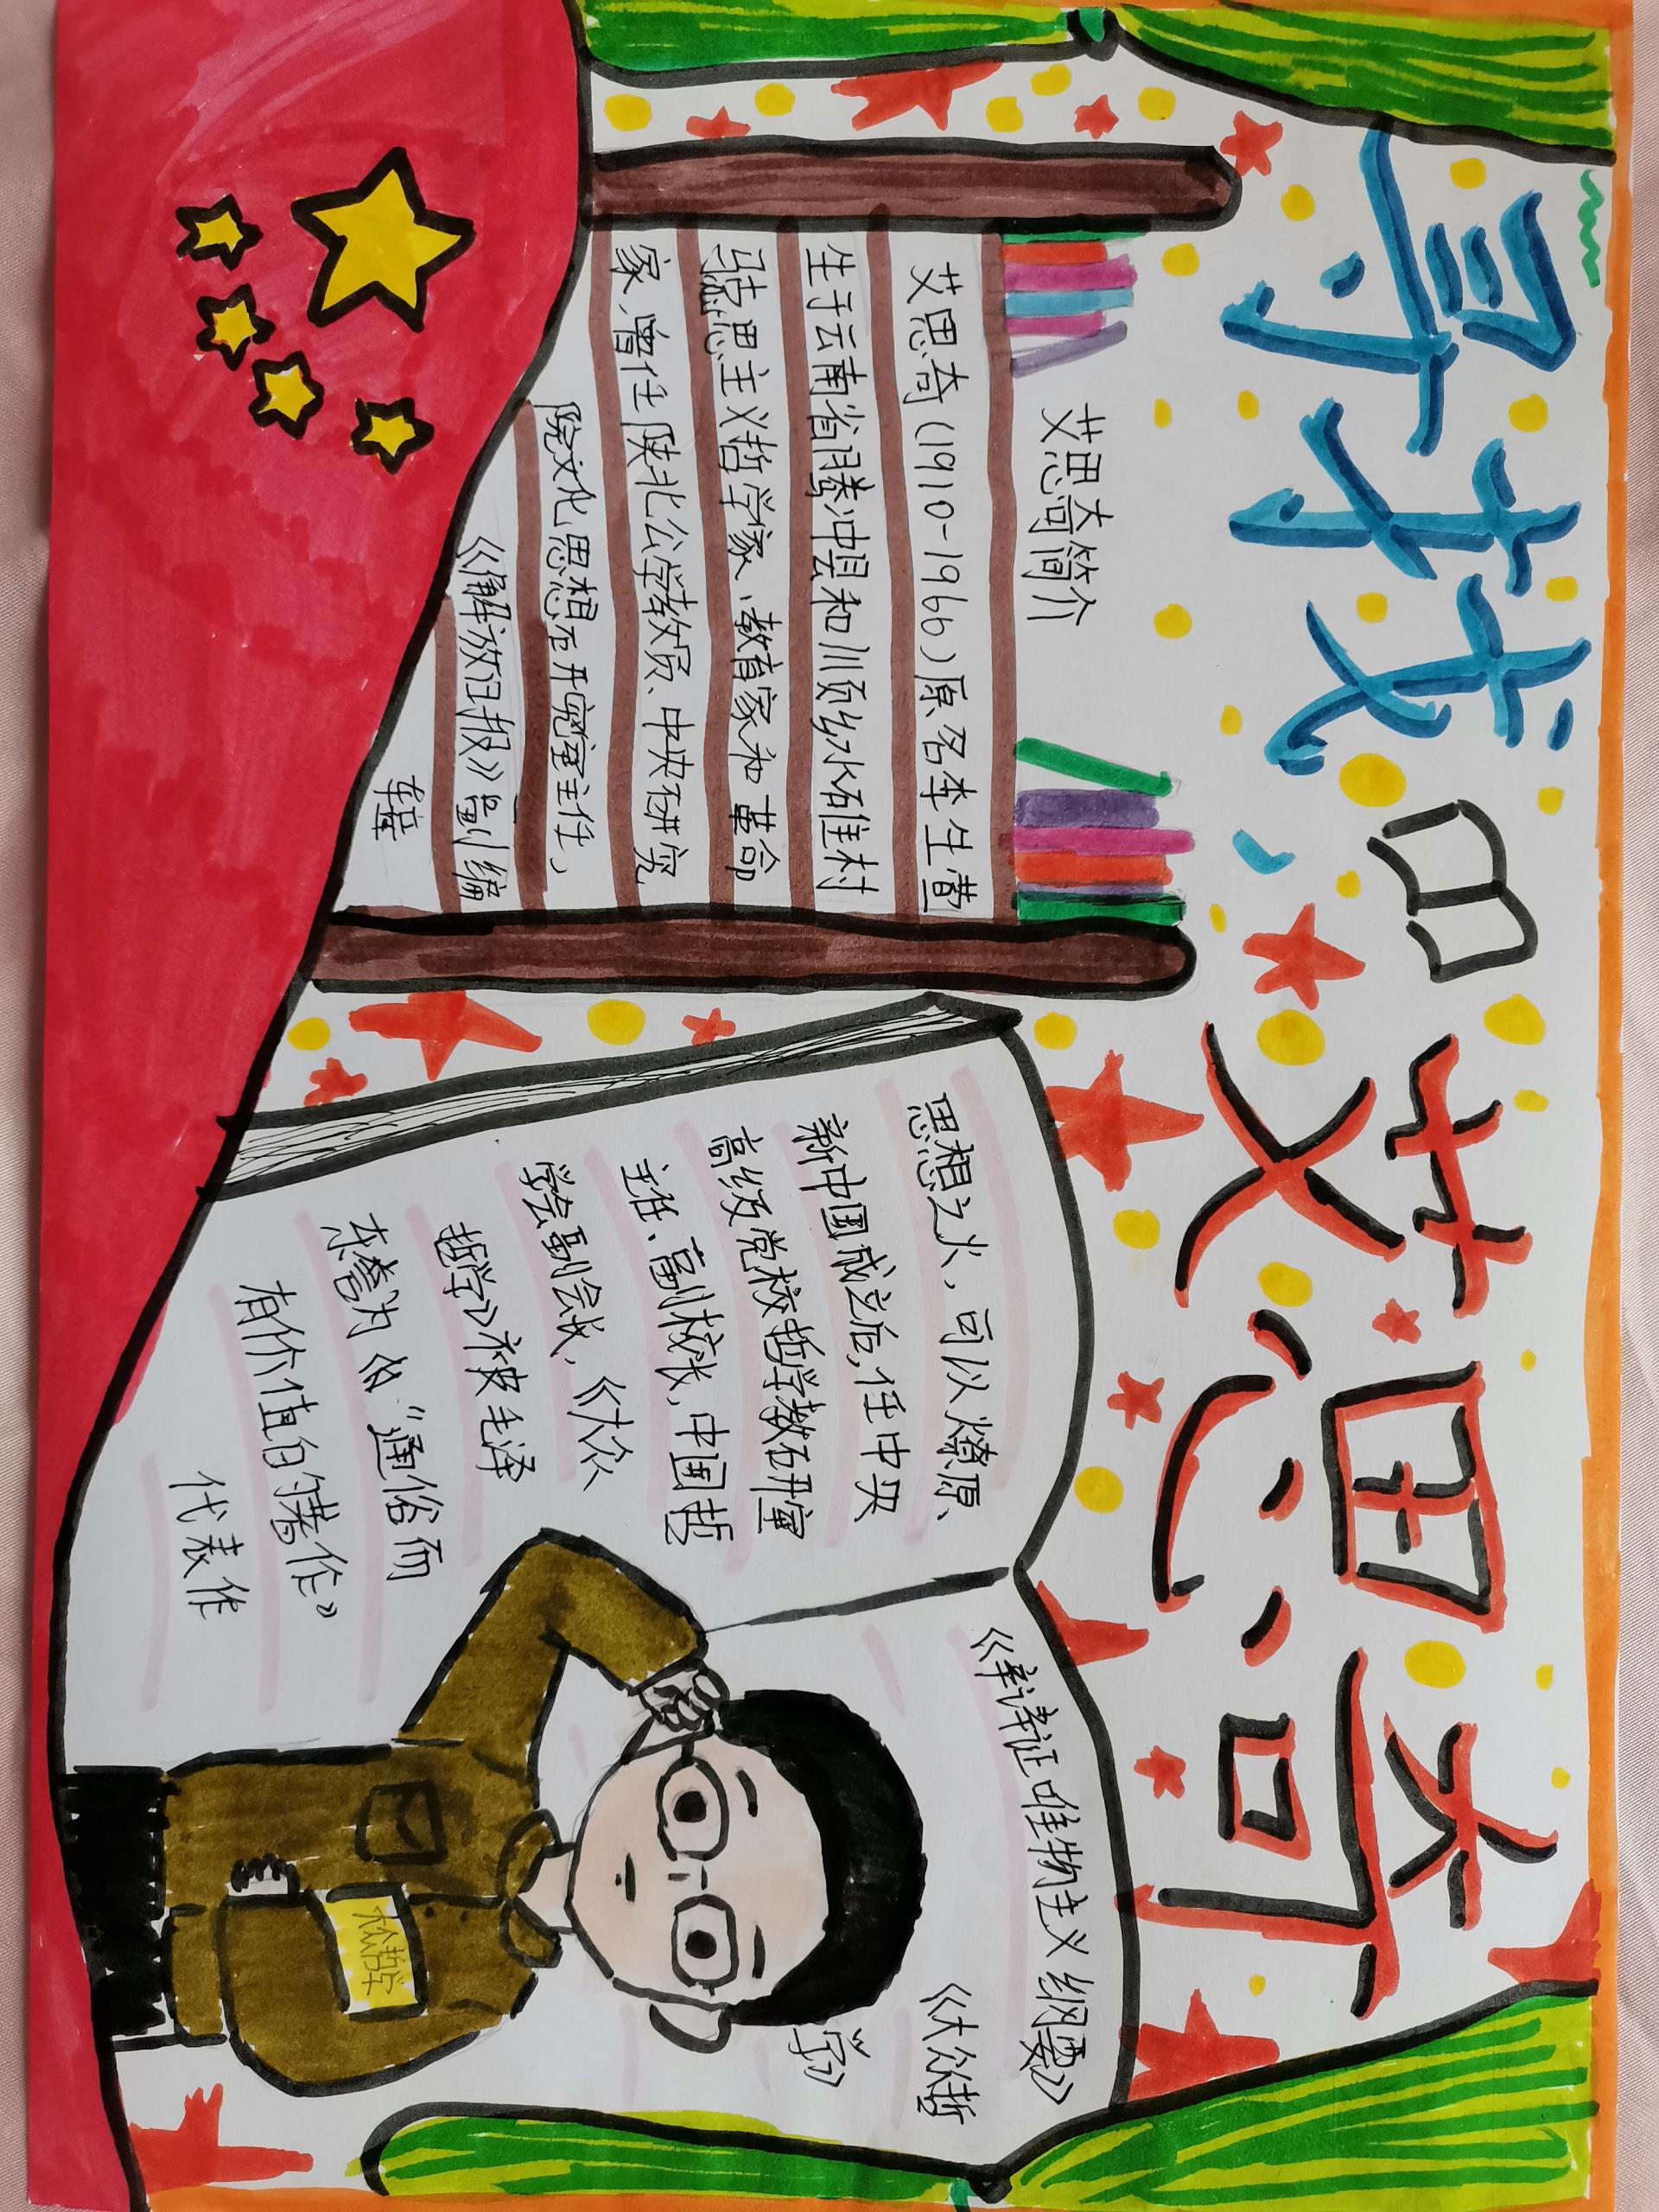 寻找艾思奇
艾思奇简介
艾思奇(1910-1966)原名李生萱
生于云南省腾冲县和顺乡水碓村
马克思主义哲学家、教育家和革命
家、曾任陕北公学教员、中央研究
院文化思想研究室主任、
《解放日报》副编
辑
思想之火,可以燎原、
新中国成立后,任中央
高级党校哲学教研室
主任、副校长,中国哲
学会副会长,《大众
哲学》被毛泽
东誉为《"通俗而
有价值的著作》
代表作
《辛谤证唯物主义纲要》
《大众哲
学》
大众哲学